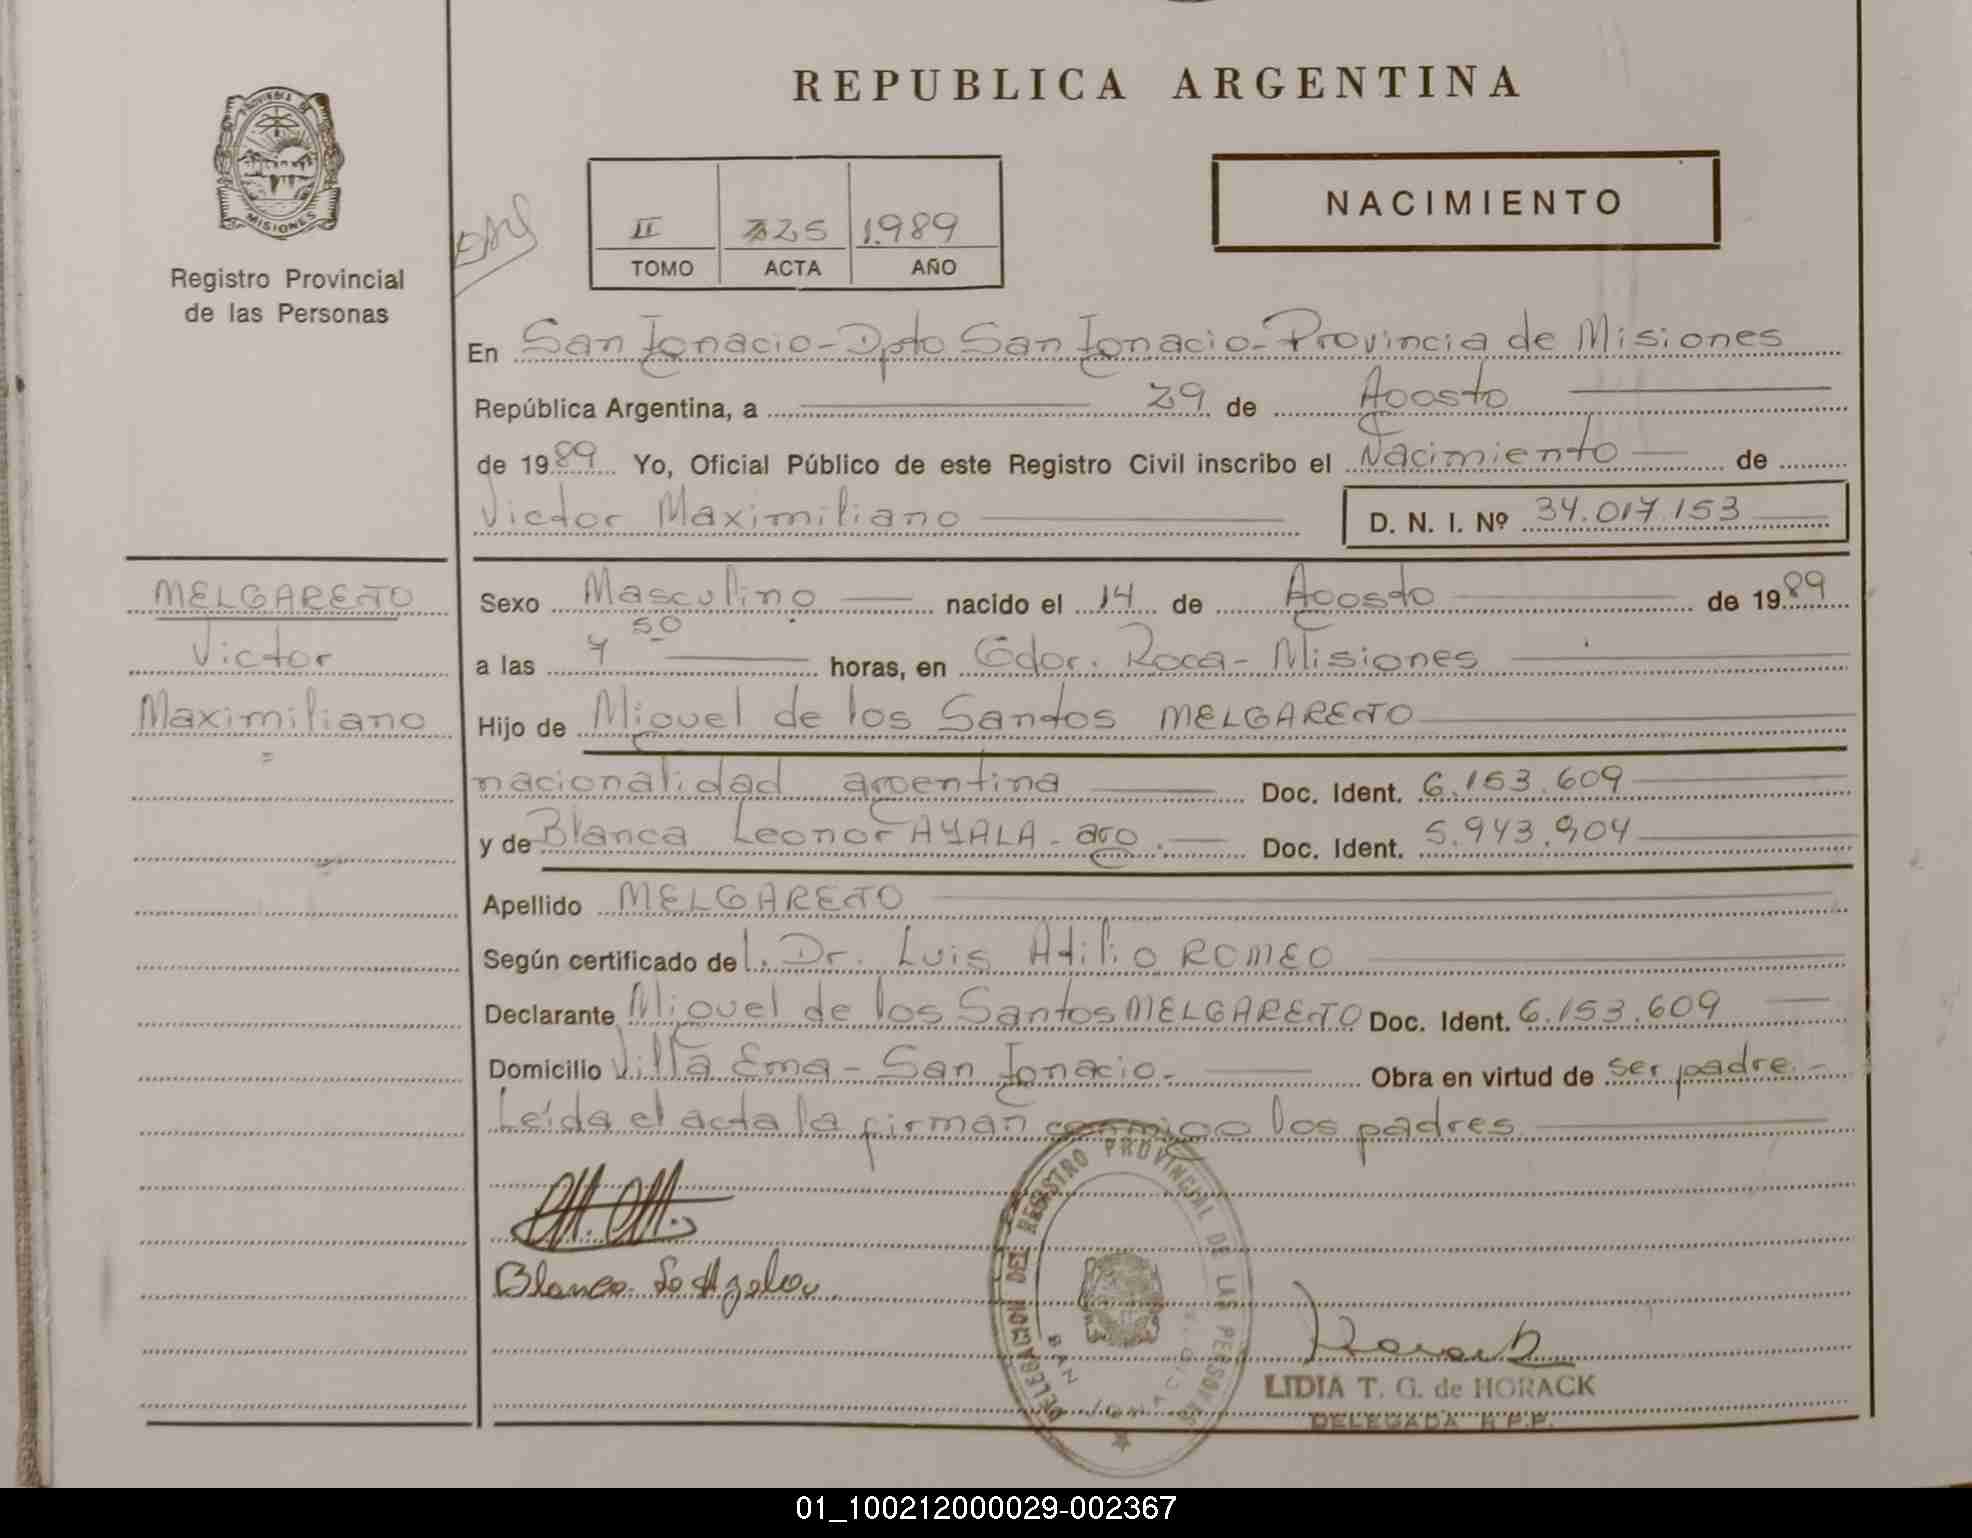 REPUBLICA ARGENTINA
PROVINCIA DE
MISIONES
Registro Provincial
de las Personas
NACIMIENTO
II 325 1.989
TOMO ACTA AÑO
En San Ignacio-Dpto San Ignacio-Provincia de Misiones
República Argentina, a 29 de Agosto
de 1989 Yo, Oficial Público de este Registro Civil inscribo el Nacimiento de
Victor Maximiliano D. N. I. Nº 34.017.153
MELGAREJO
Victor
Maximiliano
Sexo Masculino nacido el 14 de Agosto de 1989
a las 7 50 horas, en Gdor. Roca- Misiones
Hijo de Miguel de los Santos MELGAREJO
nacionalidad argentina Doc. Ident. 6.153.609
y de Blanca Leonor AYALA- arg. Doc. Ident. 5.943.904
Apellido MELGAREJO
Según certificado del. Dr. Luis Atilio ROMEO
Declarante Miguel de los Santos MELGAREJO Doc. Ident. 6.153.609
Domicilio Villa Ema- San Ignacio- Obra en virtud de ser padre-
Leída el acta la firman conmigo los padres
Blanca
DELEGACION DEL REGISTRO PROVINCIAL DE LAS PERSONAS
SAN IGNACIO
Horack
LIDIA T. G. de HORACK
DELEGADA R.P.P.
01_100212000029-002367